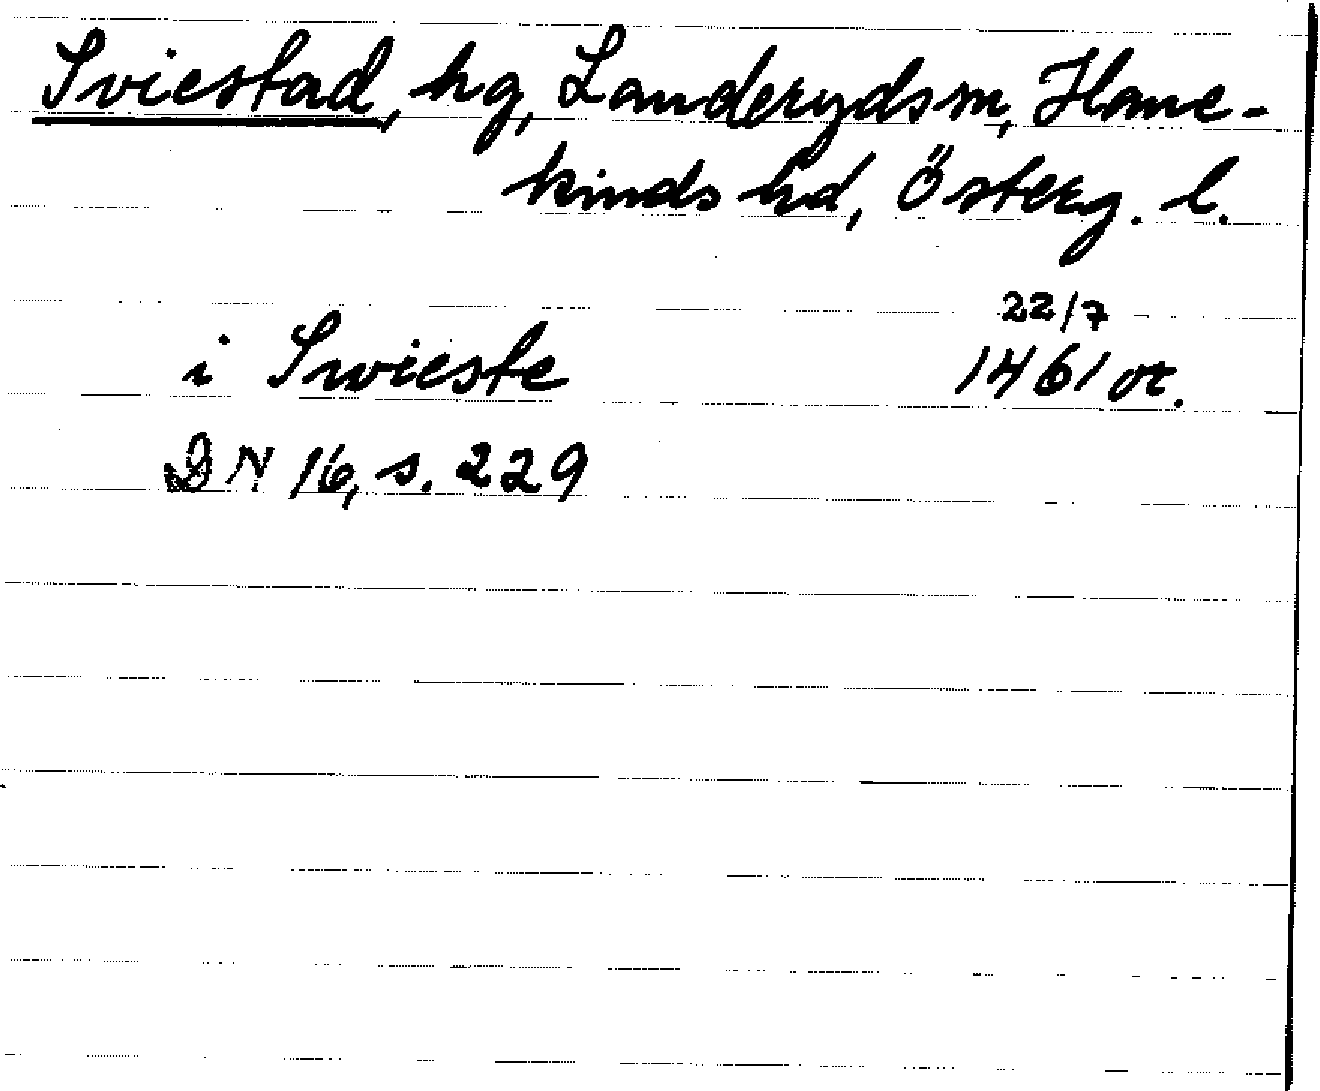 Sviestad, hg, Landeryds sn, Hane-
kinds hd, Österg. l.
22/7
i Swieste 1461 or.
DN 16, s. 229